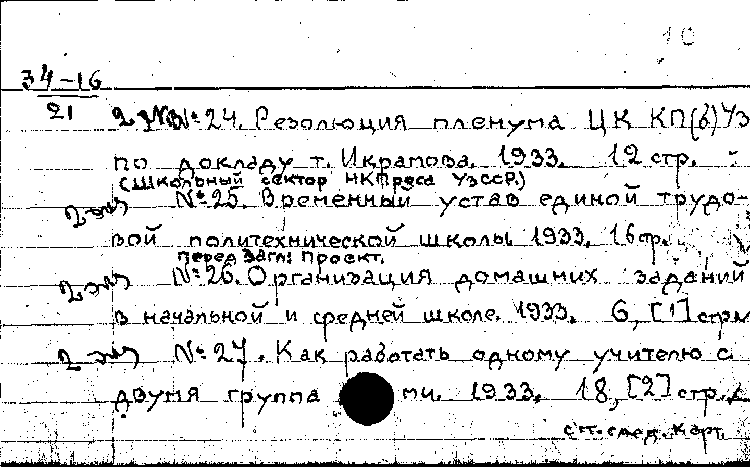 10
34-16
21
2 экз №24. Резолюция пленума ЦК КП(б)Уз
по докладу т. Икрамова. 1933. 12 стр.
(Школьный сектор НКПроса УзССР.)
2 экз №25. Временный устав единой трудо-
вой политехнической школы. 1933. 16 стр.
Перед загл: Проект.
2 экз №26. Организация домашних заданий
в начальной и средней школе. 1933. 6, [1] стр.
2 экз №27. Как работать одному учителю с
двумя группами. 1933. 18, [2] стр.
см. след. карт.